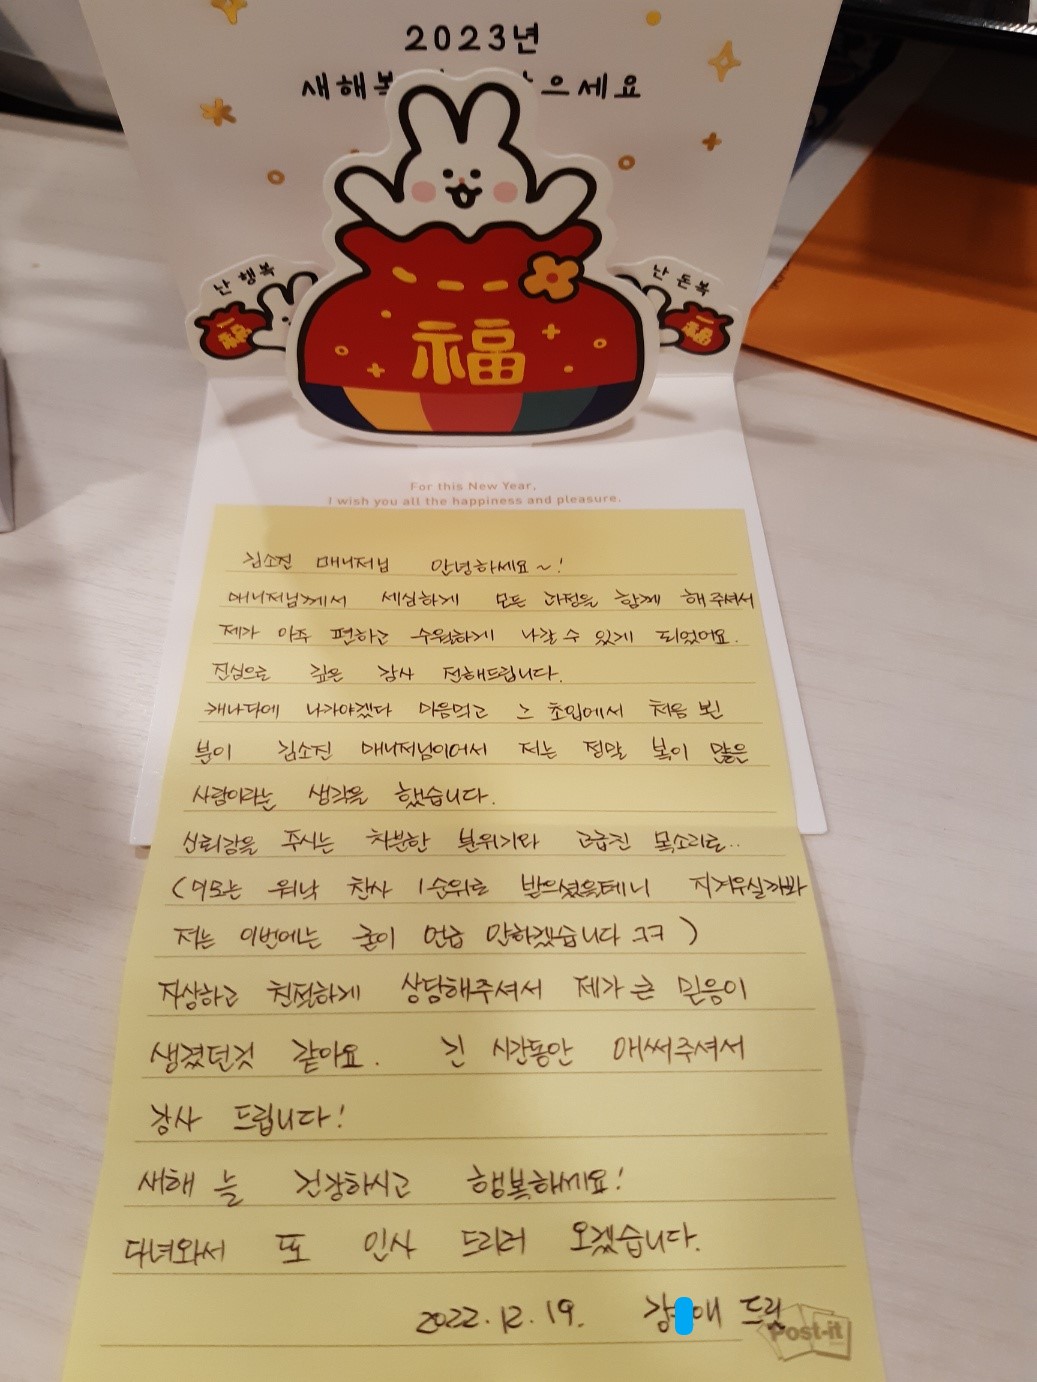 2023년
새해복 으세요
난 행복
난 돈복
福
福
福
For this New Year,
I wish you all the happiness and pleasure.
김소진 매니저님 안녕하세요~!
매니저님께서 세심하게 모든 과정을 함께 해주셔서
제가 아주 편하고 수월하게 나갈 수 있게 되었어요.
진심으로 깊은 감사 전해드립니다.
캐나다에 나가야겠다 마음먹고 그 초입에서 처음 뵌
분이 김소진 매니저님이어서 저는 정말 복이 많은
사람이라는 생각을 했습니다.
신뢰감을 주시는 차분한 분위기와 고급진 목소리로..
(미모는 워낙 찬사 1순위로 받으셨을테니 지겨우실까봐
저는 이번에는 굳이 언급 안하겠습니다 ㅋㅋ)
자상하고 친절하게 상담해주셔서 제가 큰 믿음이
생겼던것 같아요. 긴 시간동안 애써주셔서
감사 드립니다!
새해 늘 건강하시고 행복하세요!
다녀와서 또 인사 드리러 오겠습니다.
2022.12.19. 애 드림
Post-it